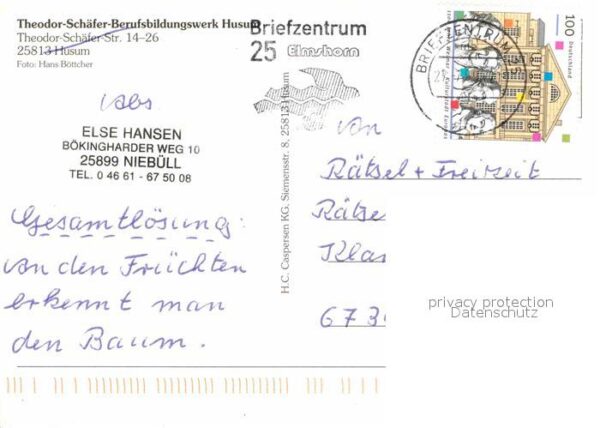 Theodor-Schäfer-Berufsbildungswerk Husum
Theodor-Schäfer-Str. 14–26
25813 Husum
Foto: Hans Böttcher
Briefzentrum
25 Elmshorn
BRIEFZENTRUM 25
100
Deutschland
abs
ELSE HANSEN
BÖKINGHARDER WEG 10
25899 NIEBÜLL
TEL. 0 46 61 - 67 50 08
Gesamtlösung:
an den Früchten
erkennt man
den Baum.
H.C. Caspersen KG, Siemensstr. 8, 25813 Husum
an
Rätsel + Freizeit
Rätse
Klas
673
privacy protection
Datenschutz